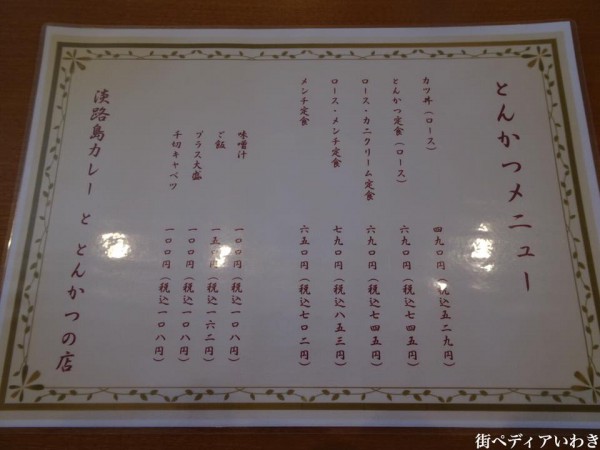 とんかつメニュー
カツ丼(ロース) 四九〇円(税込五二九円)
とんかつ定食(ロース) 六九〇円(税込七四五円)
ロース・カニクリーム定食 六九〇円(税込七四五円)
ロース・メンチ定食 七九〇円(税込八五三円)
メンチ定食 六五〇円(税込七〇二円)
味噌汁 一〇〇円(税込一〇八円)
ご飯 一五〇円(税込一六二円)
プラス大盛 一〇〇円(税込一〇八円)
千切キャベツ 一〇〇円(税込一〇八円)
淡路島カレー と とんかつの店
街ペディアいわき